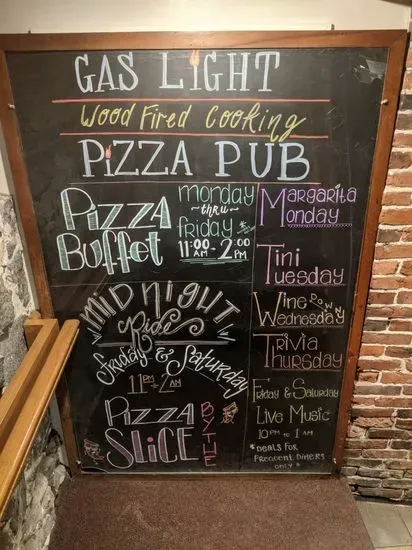 GAS LIGHT
Wood Fired Cooking
PIZZA PUB
PIZZA
Buffet
monday
~ thru ~
friday
11:00 - 2:00
AM PM
MIDNIGHT
Ride
Friday & Saturday
11PM - 2AM
PIZZA
SLICE
BY THE
MARGARITA
MONDAY
TINI
TUESDAY
WINE DOWN
WEDNESDAY
TRIVIA
THURSDAY
FRIDAY & SATURDAY
LIVE MUSIC
10 PM TO 1 AM
*DEALS FOR
FREQUENT DINERS
ONLY*